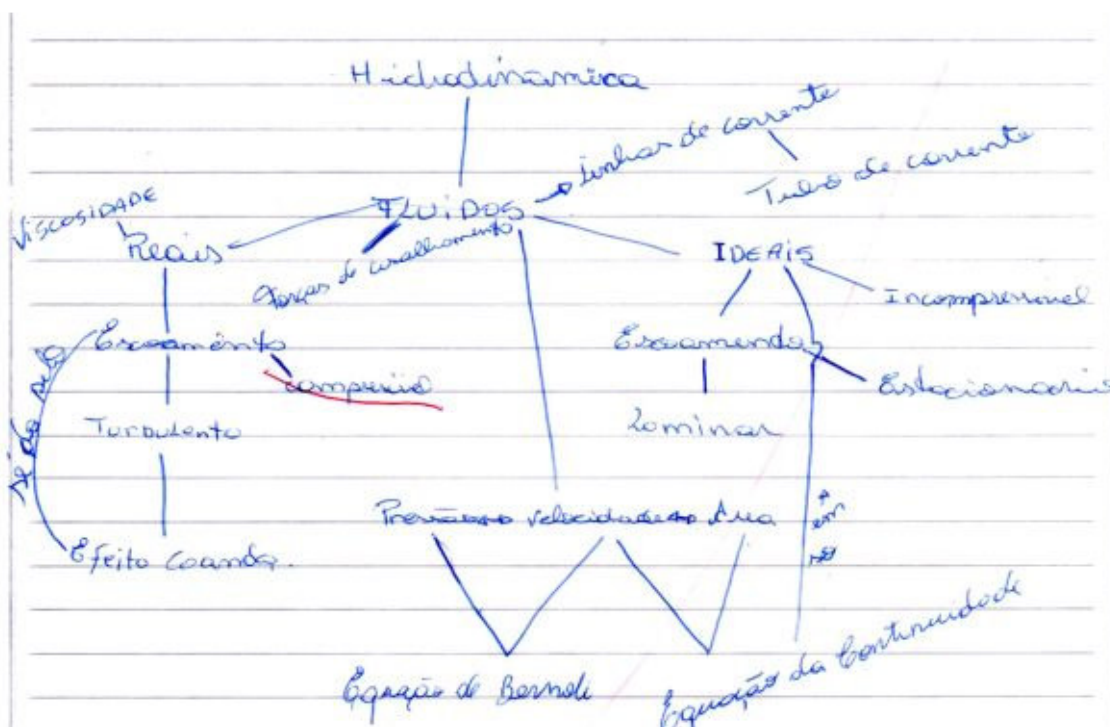 Hidrodinâmica
Linhas de corrente
Tubo de corrente
FLUIDOS
VISCOSIDADE
Reais
Forças de cisalhamento
IDEAIS
Incompressível
Escoamento
Escoamendo
Estacionario
Turbulento
Laminar
se do pelo
Pressão velocidade Área
Efeito Coanda.
Equação de Bernoli
Equação da Continuidade